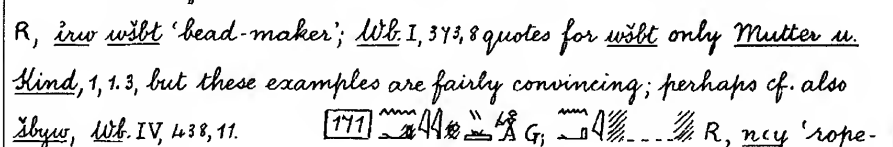 R, irw wšbt 'bead-maker'; Wb. I, 373,8 quotes for wšbt only Mutter u.
Kind, 1,1.3, but these examples are fairly convincing; perhaps cf. also
šbyw, Wb. IV, 438,11. [171] G; R, ncy 'rope-